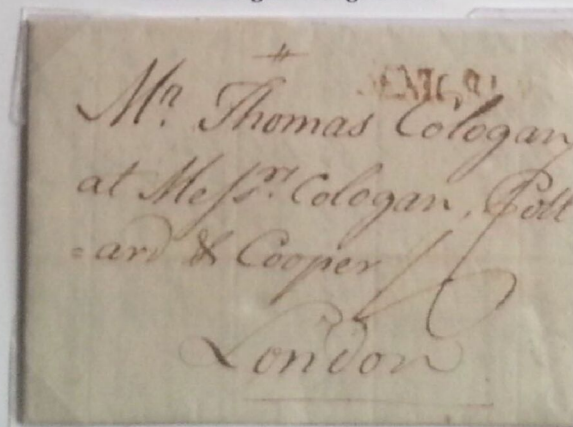 Mr. Thomas Cologan
at Messrs. Cologan, Poll
=ard & Cooper
London